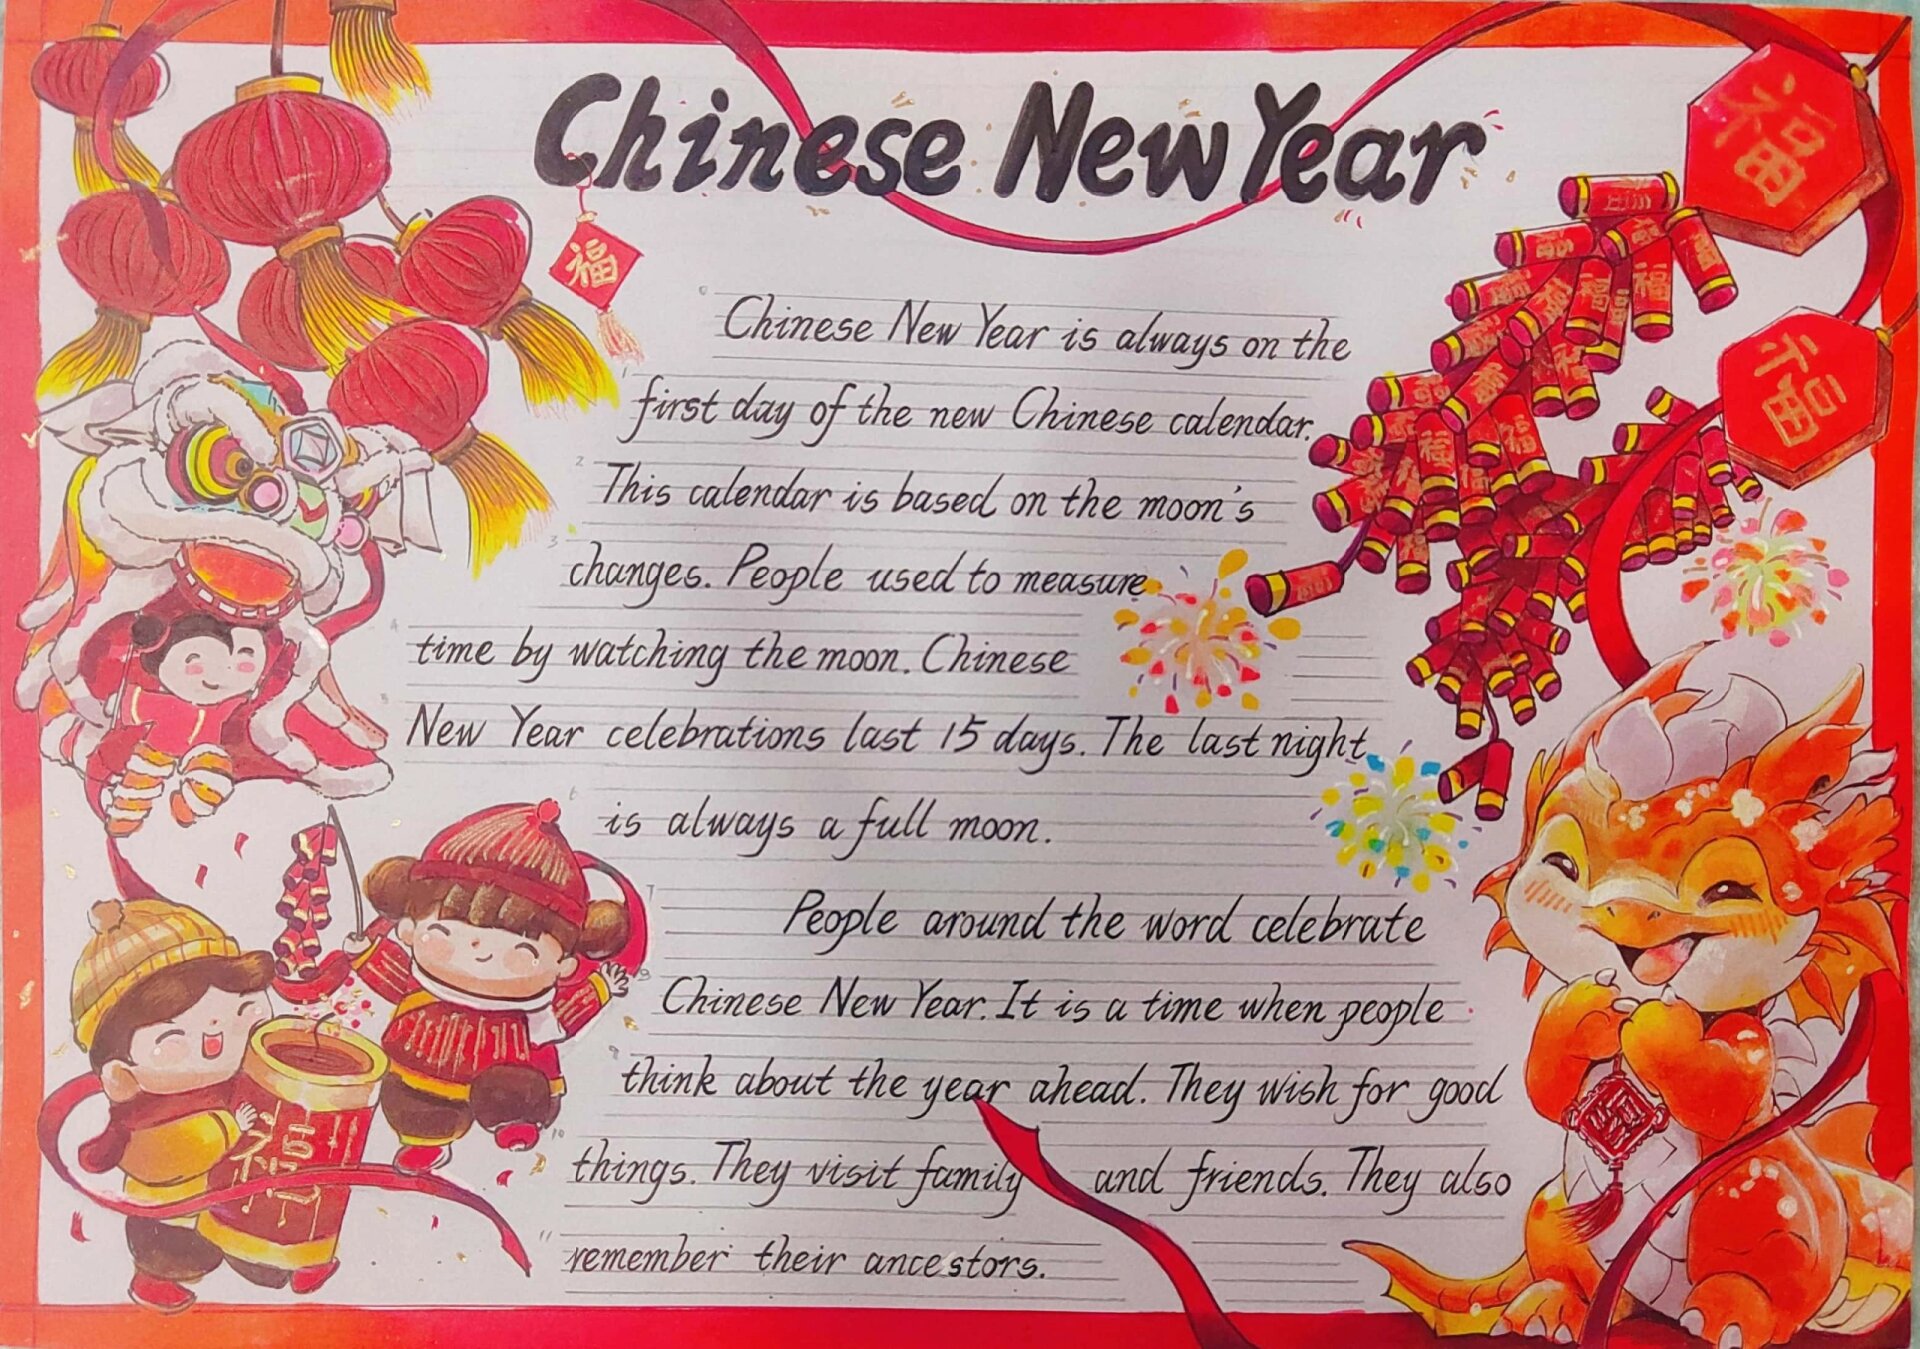 Chinese New Year
福
福
福
Chinese New Year is always on the
first day of the new Chinese calendar.
This calendar is based on the moon's
changes. People used to measure
time by watching the moon. Chinese
New Year celebrations last 15 days. The last night
is always a full moon.
People around the word celebrate
Chinese New Year. It is a time when people
think about the year ahead. They wish for good
things. They visit family and friends. They also
remember their ancestors.
福